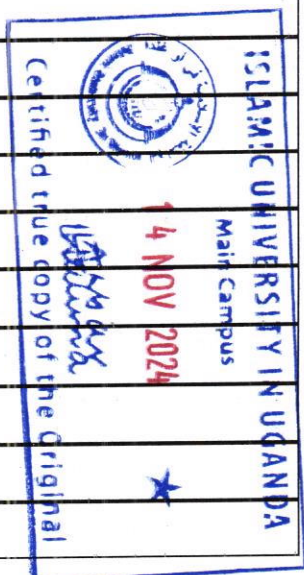 ISLAMIC UNIVERSITY IN UGANDA
Main Campus
14 NOV 2024
Certified true copy of the Original